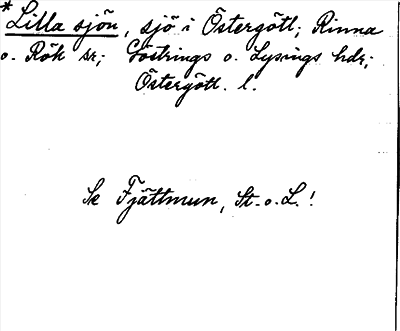 *Lilla sjön, sjö i Östergötl; Rinna
o. Rök sr; Göstrings o. Lysings hdr;
Östergötl. l.
Se Fjättmun, St. o. L.!